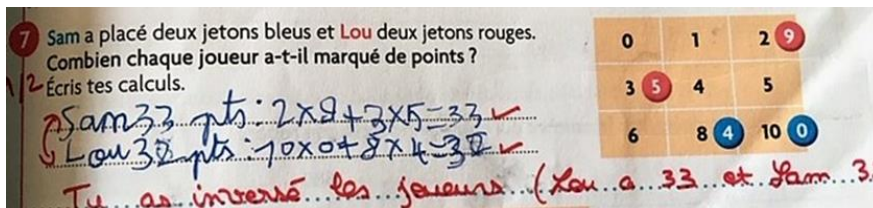 7 Sam a placé deux jetons bleus et Lou deux jetons rouges.
Combien chaque joueur a-t-il marqué de points ?
1/2 Écris tes calculs.
Sam 33 pts : 2×9+3×5=33 ✓
Lou 32 pts : 10×0+8×4=32 ✓
Tu as inversé les joueurs (Lou a 33 et Sam 3
0 1 2 9
3 5 4 5
6 8 4 10 0